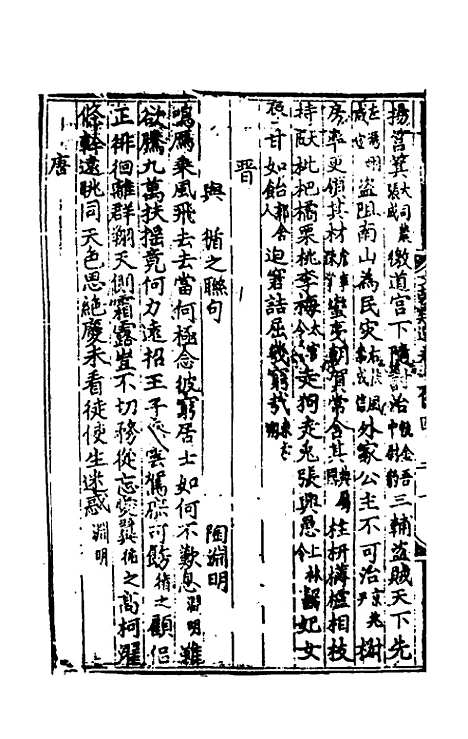 揚簸箕大司農張成徼道宮下隨討治執金吾中尉豹三輔盜賊天下危
左馮翊咸宣盜阻南山為民災右扶風李成信外家公主不可治京兆尹椒
房率更領其材詹事陳掌蠻夷朝賀常舍其典屬國柱枅欂櫨相枝
持大匠枇杷橘栗桃李梅太官令走狗逐兔張罘罳上林令齧妃女
脣甘如飴郭舍人迫窘詰屈幾窮哉東方朔
晉
與循之聯句 陶淵明
鳴鴈乘風飛去去當何極念彼窮居士如何不歎息淵明雖
欲騰九萬扶搖竟何力遠招王子喬雲駕庶可飭循之顧侶
正徘徊離群翔天側霜露豈不切務從忘愛翼循之高柯濯
條幹遠眺同天色思絕慶未看徒使生迷惑淵明
唐